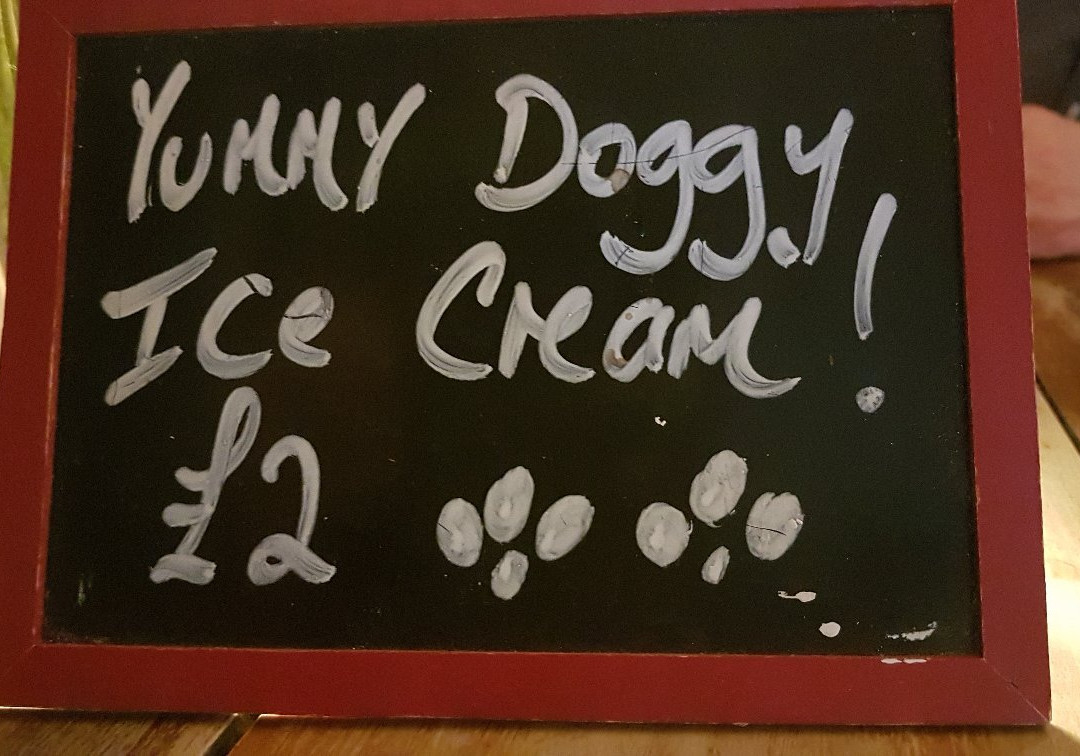 Yummy Doggy
Ice Cream!
£2